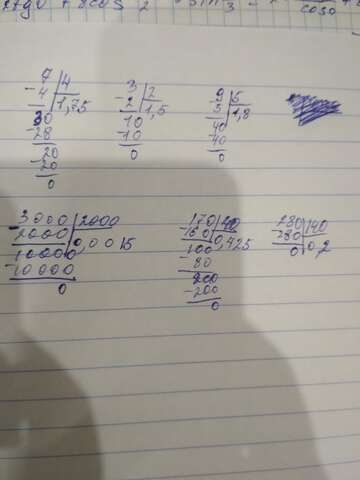 7 | 4
- 4 | 1,75
30
- 28
20
- 20
0
3 | 2
- 2 | 1,5
10
- 10
0
9 | 5
- 5 | 1,8
40
- 40
0
- 3000 | 2000
2000 | 0,0015
10000
- 10000
0
170 | 40
- 160 | 0,425
100
- 80
200
- 200
0
280 | 140
- 280 | 0,2
0